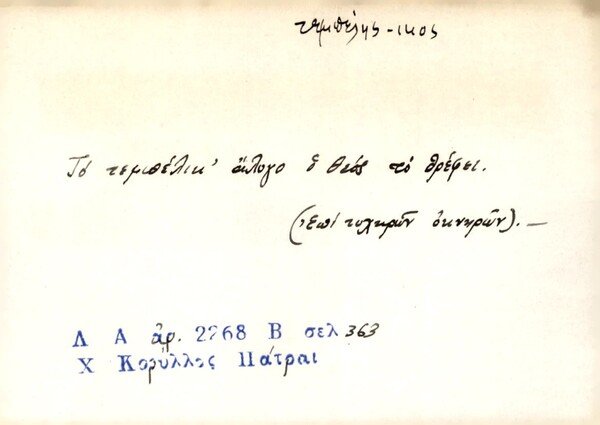 τεμπέλης -ικος
Τό τεμπέλικ' ἄλογο ὁ θεός τό θρέφει.
(Ἐπί τυχηρῶν ὀκνηρῶν). —
Λ Α ἀρ. 2268 Β σελ 363
Χ Κορύλλος Πάτραι